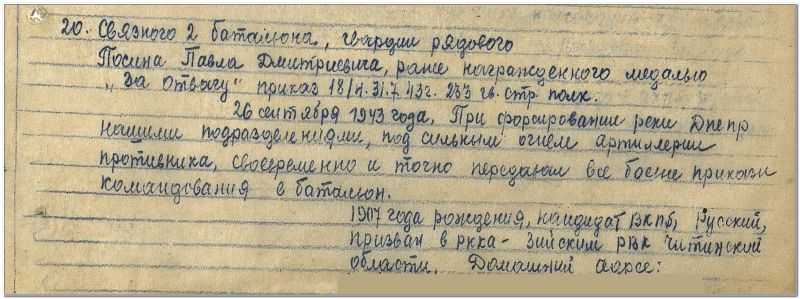 20. Связного 2 батальона, гвардии рядового
Посина Павла Дмитриевича, ранее награжденного медалью
„За отвагу" приказ 18/н. 31.7.43г. 233 гв. стр. полк.
26 сентября 1943 года. При форсировании реки Днепр
нашими подразделениями, под сильным огнем артиллерии
противника, своевременно и точно передавал все боевые приказы
командования в батальон.
1907 года рождения, кандидат ВКПб, Русский,
призван в РККА - Зейским РВК Читинской
области. Домашний адрес: